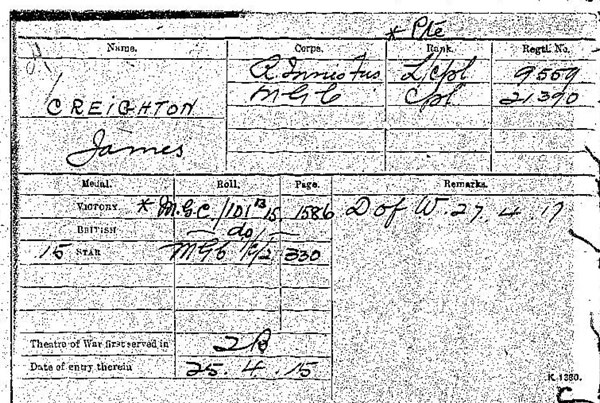 * Pte
Name. Corps. Rank. Regtl. No.
R Innis Fus L/Cpl 9559
CREIGHTON M G C Cpl 21390
James
Medal. Roll. Page. Remarks.
VICTORY * M.G.C./101 B 15. 1586 D of W. 27. 4. 17
BRITISH — do — 
15 STAR MGC 330
Theatre of War first served in 2B
Date of entry therein 25. 4. 15
K 1380.
C